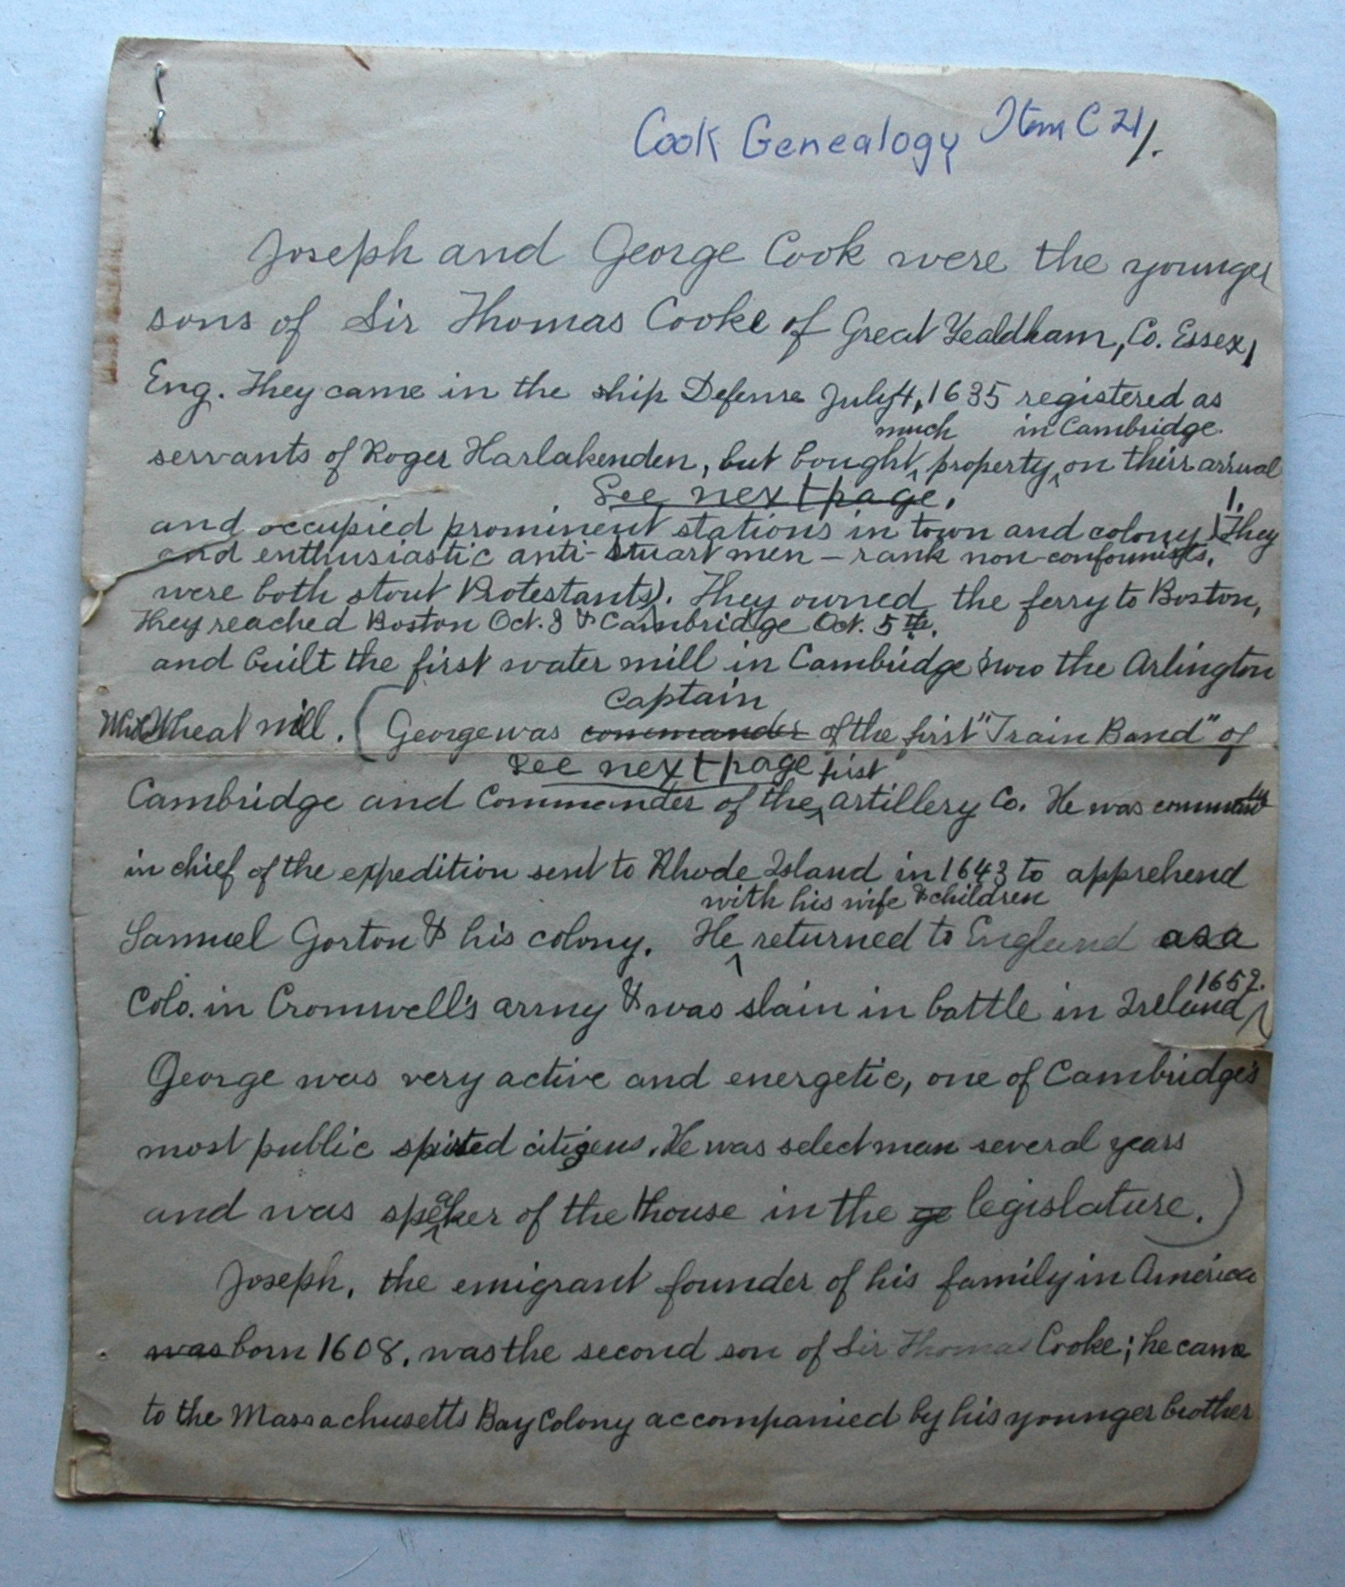 Cook Genealogy Item C 21/.
Joseph and George Cook were the younger
sons of Sir Thomas Cooke of Great Yealdham, Co. Essex,
Eng. They came in the ship Defense July 4, 1635 registered as
much in Cambridge
servants of Roger Harlakenden, but bought property, on their arrival
See next page. 1.
and occupied prominent stations in town and colony (They
and enthusiastic anti-Stuart men – rank non-conformists.
were both stout Protestants). They owned the ferry to Boston,
They reached Boston Oct. 3 & Cambridge Oct. 5th.
and built the first water mill in Cambridge now the Arlington
Wheat mill. (George was commander of the first "Train Band" of
Captain
See next page first
Cambridge and Commander of the artillery Co. He was
in chief of the expedition sent to Rhode Island in 1643 to apprehend
with his wife & children
Samuel Gorton & his colony. He returned to England as a
1652.
Colo. in Cromwell's army & was slain in battle in Ireland)
George was very active and energetic, one of Cambridge's
most public spirited citizens. He was selectman several years
and was speaker of the house in the ge legislature.)
Joseph, the emigrant founder of his family in America
was born 1608, was the second son of Sir Thomas Cooke; he came
to the Massachusetts Bay Colony accompanied by his younger brother